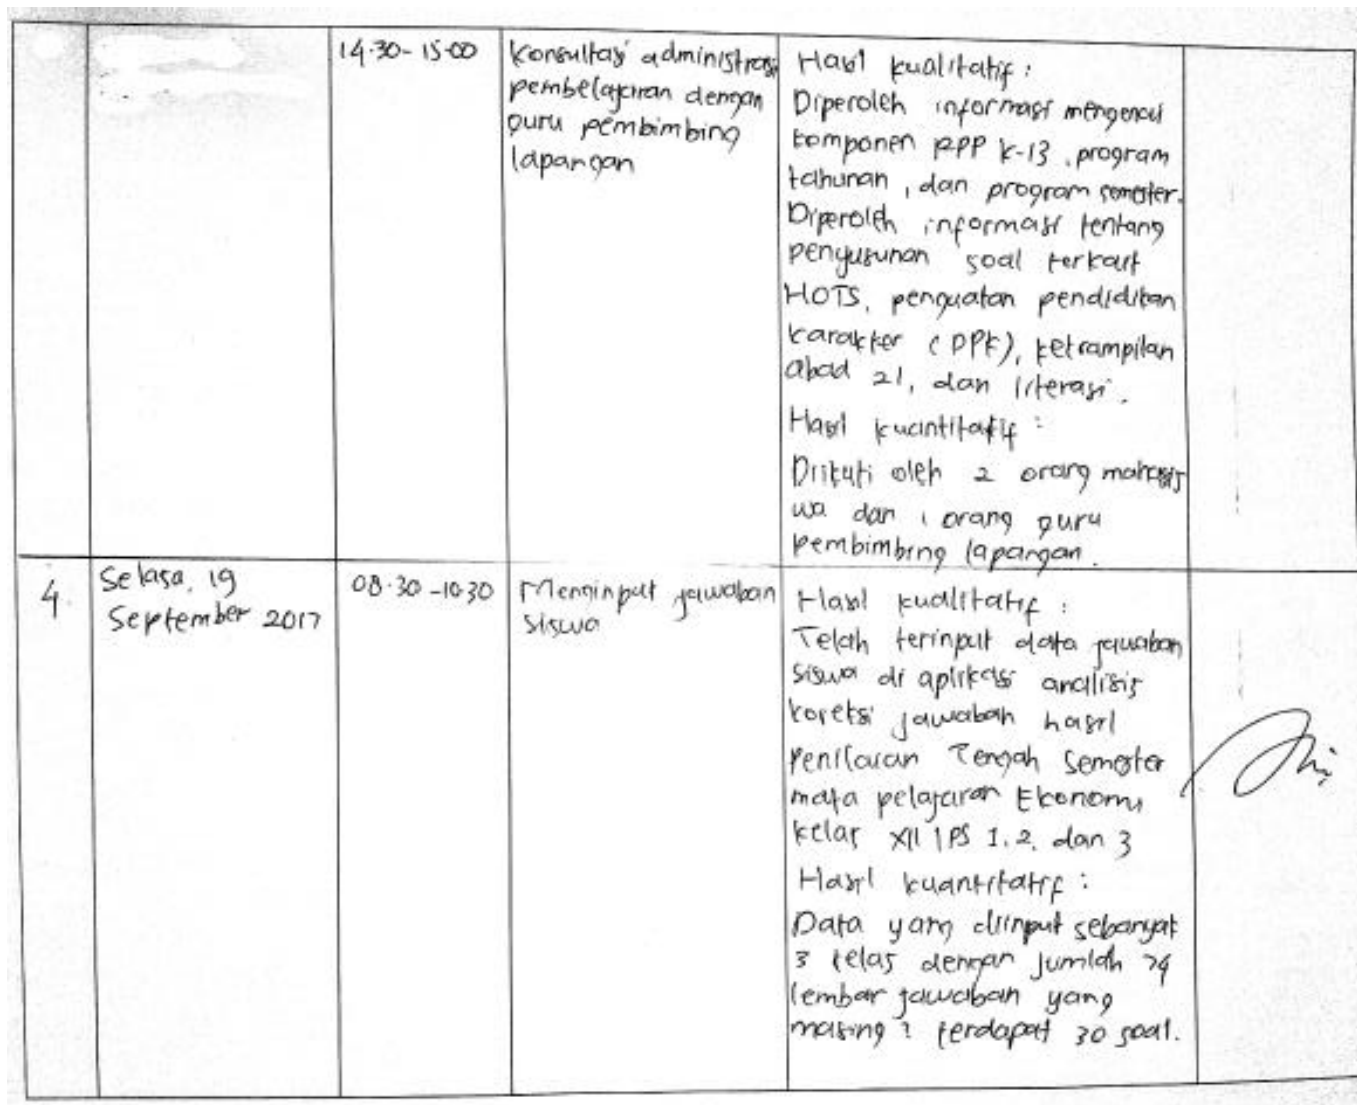 14.30-15.00
Konsultasi administrasi
pembelajaran dengan
guru pembimbing
lapangan
Hasil kualitatif :
Diperoleh informasi mengenai
komponen RPP K-13, program
tahunan, dan program semester.
Diperoleh informasi tentang
penyusunan soal terkait
HOTS, penguatan pendidikan
karakter (PPK), ketrampilan
abad 21, dan literasi.
Hasil kuantitatif :
Diikuti oleh 2 orang mahasis
wa dan 1 orang guru
pembimbing lapangan.
4.
Selasa, 19
September 2017
08.30-10.30
Menginput jawaban
siswa
Hasil kualitatif :
Telah terinput data jawaban
siswa di aplikasi analisis
koreksi jawaban hasil
Penilaian Tengah Semester
mata pelajaran Ekonomi
kelas XII IPS 1, 2, dan 3
Hasil kuantitatif :
Data yang diinput sebanyak
3 kelas dengan jumlah 74
lembar jawaban yang
masing2 terdapat 30 soal.